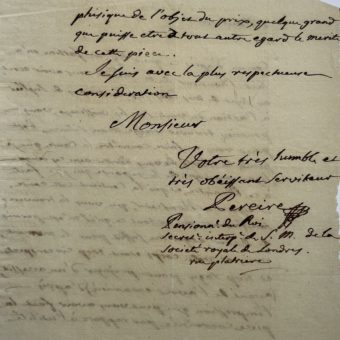 phisique de l'objet du prix, quelque grand
que puisse etre à tout autre egard le merite
de cette piece.
Je suis avec la plus respectueuse
consideration
Monsieur
Votre très humble et
très obéissant serviteur
Pereire
Pensionné du Roi
secret. interp. de S. M. de la
Societé royale de Londres
rue platriere